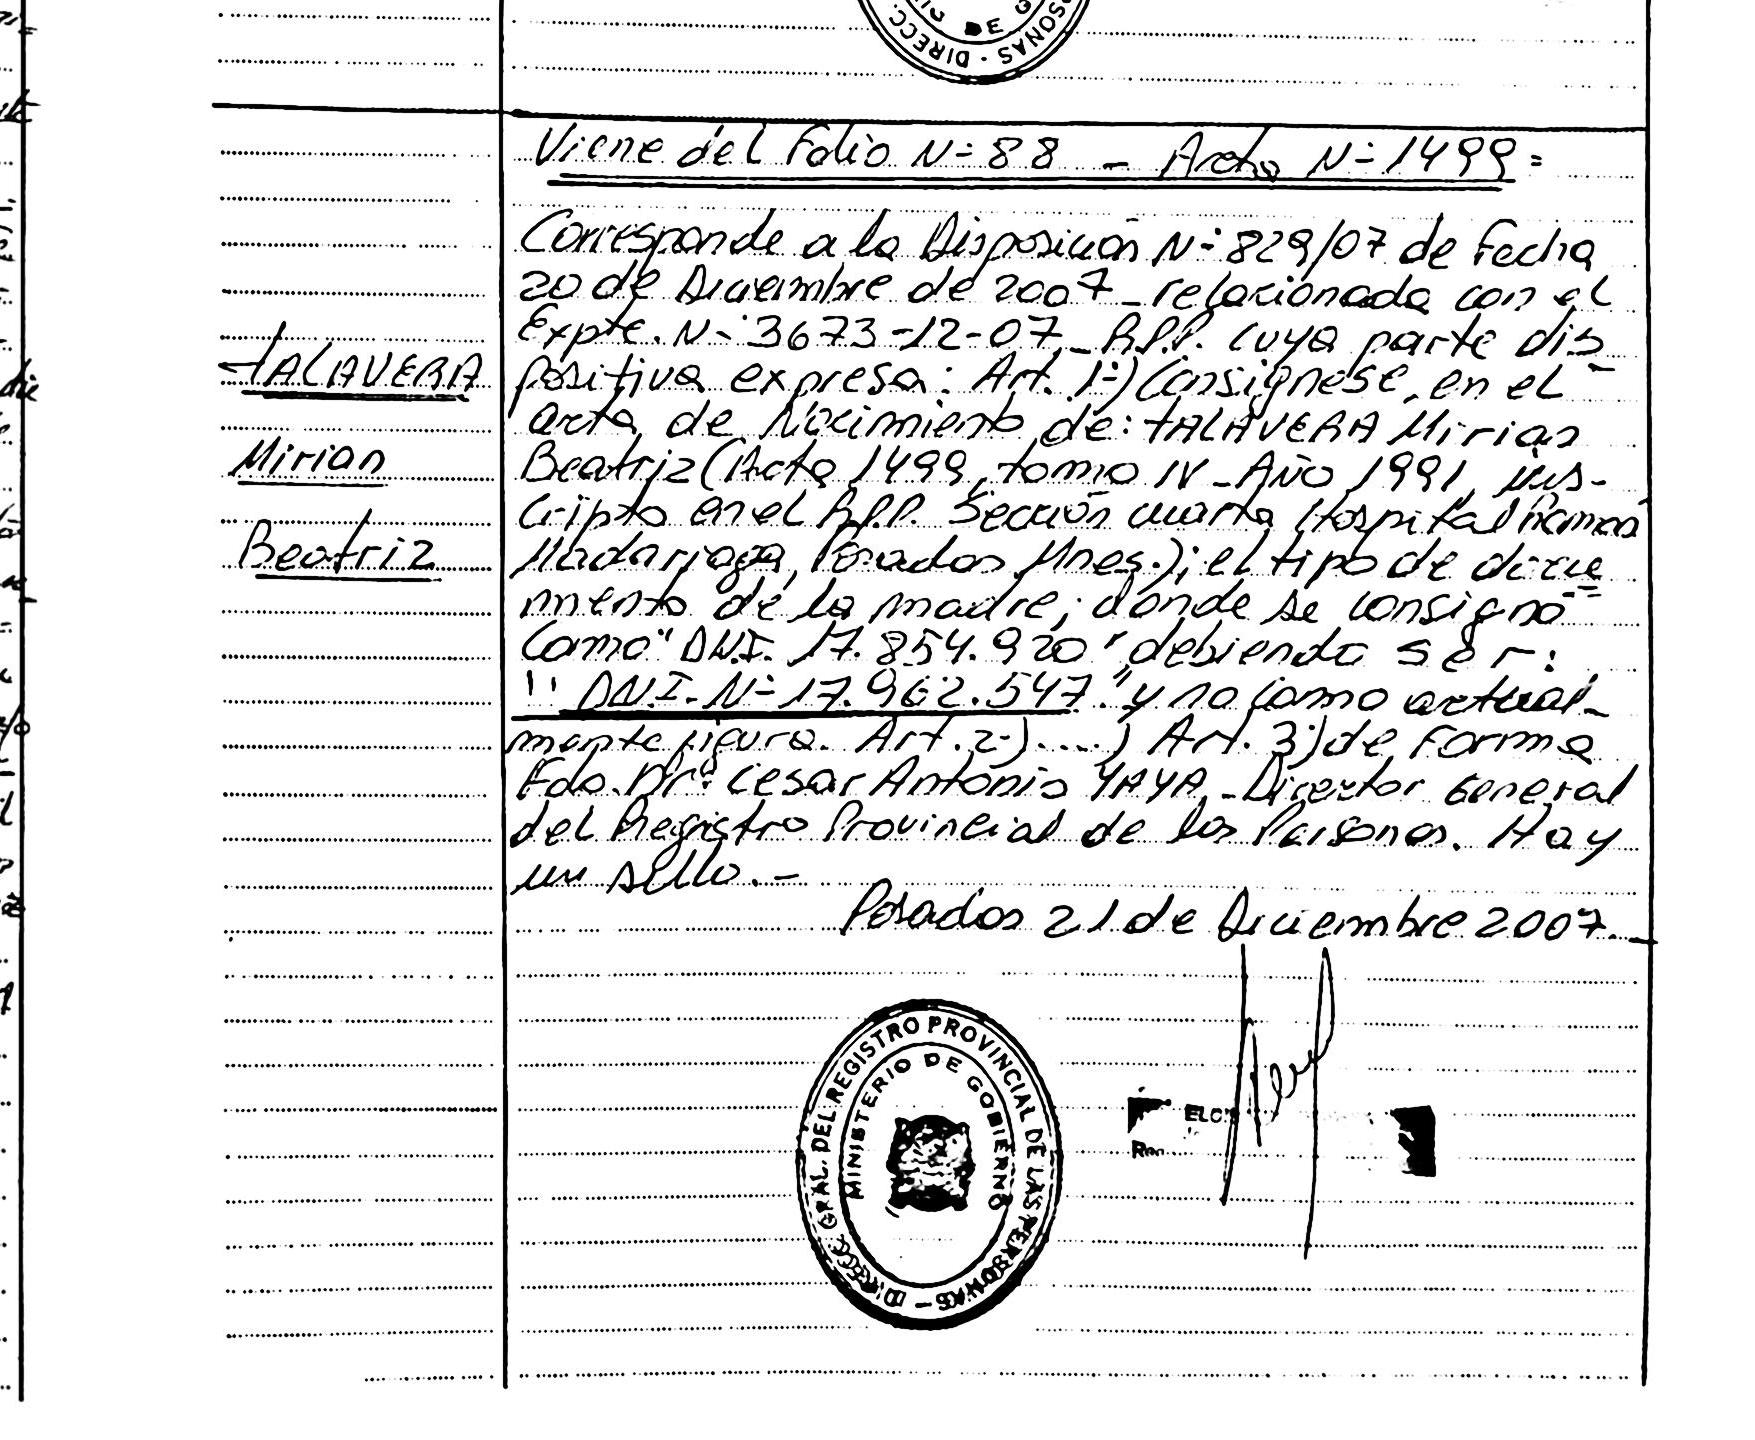 DE
SONAS - DIRECC.
Viene del Folio N=88 - Acta N=1499=
Corresponde a la Disposición N=829/07 de Fecha
20 de Diciembre de 2007 - relacionada con el
Expte. N-3673-12-07 - R.P.P. cuya parte dis-
TALAVERA
positiva expresa: Art. 1=) Consignese, en el
acta de Nacimiento de: TALAVERA Mirian
Mirian
Beatriz (Acta 1499, tomo IV - Año 1991, Ins-
cripto en el R.P.P. Sección cuarta Hospital Ramón
Beatriz
Madariaga, Posadas Mnes.); el tipo de docu=
mento de la madre; donde se consignó
como "DN.I. 17.854.920" debiendo ser:
"DN.I. N=17.962.547." y no como actual-
mente figura. Art. 2-)....) Art. 3) de Forma
Fdo. Dr: Cesar Antonio YAYA - Director General
del Registro Provincial de las Personas. Hay
un sello.-
Posadas 21 de Diciembre 2007.-
DIRECC. GRAL. DEL REGISTRO PROVINCIAL DE LAS PERSONAS -
MINISTERIO DE GOBIERNO